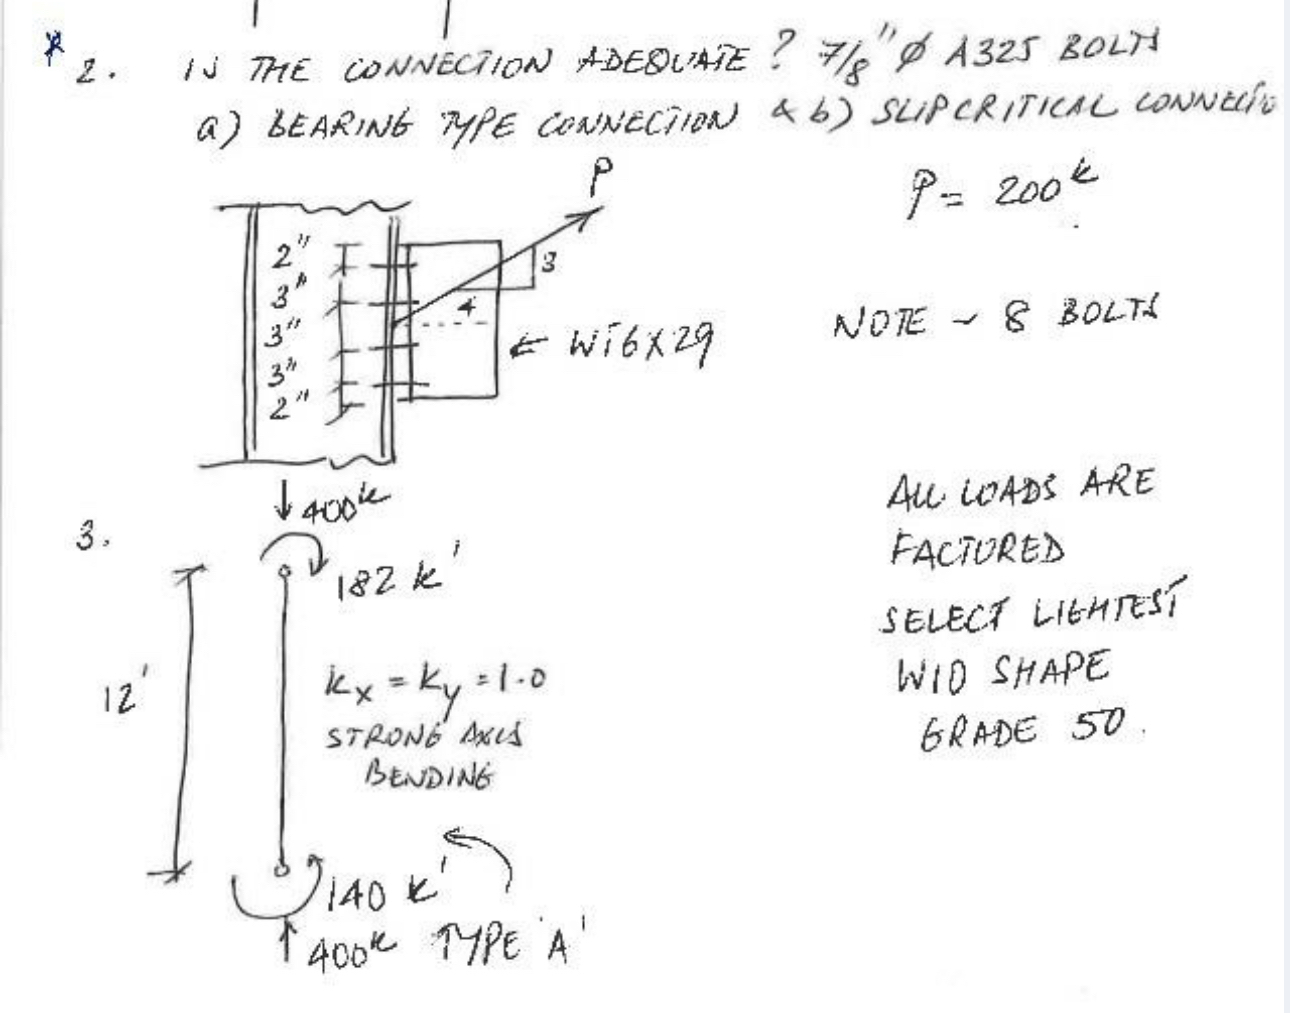 * 2. IS THE CONNECTION ADEQUATE ? 7/8" Ø A325 BOLTS
a) BEARING TYPE CONNECTION & b) SLIP CRITICAL CONNECTIO
P
P = 200k
2"
3"
3"
3"
2"
3
4
← WT6X29
NOTE ~ 8 BOLTS
400k
3.
182 k'
12'
kx = ky = 1.0
STRONG AXIS
BENDING
ALL LOADS ARE
FACTORED
SELECT LIGHTEST
W10 SHAPE
GRADE 50.
140 k'
400k TYPE 'A'